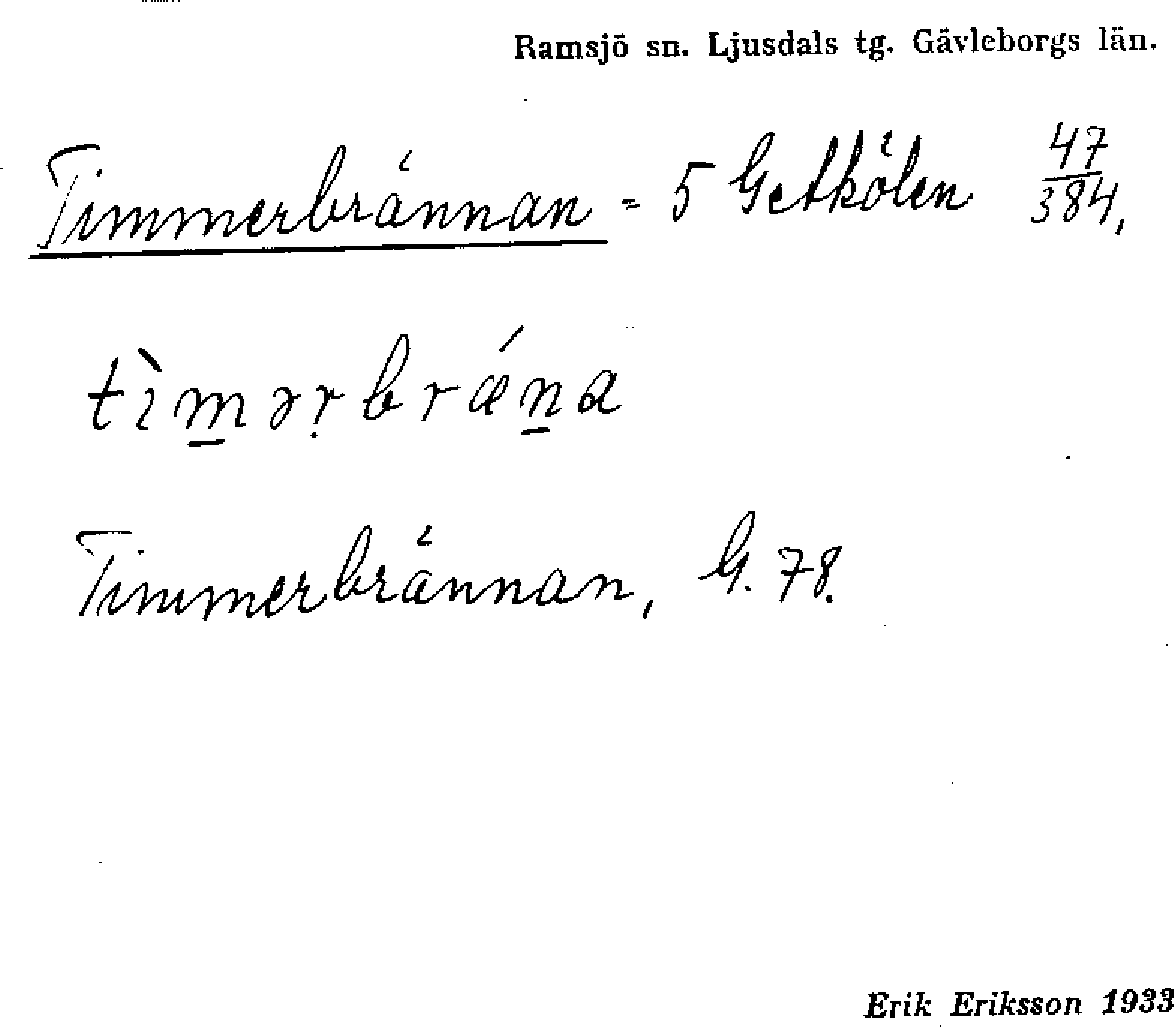 Ramsjö sn. Ljusdals tg. Gävleborgs län.
Timmerbrännan = 5 Getkölen 47/384,
tìm̲əṛbráen̲a
Timmerbrännan, G. 78.
Erik Eriksson 1933